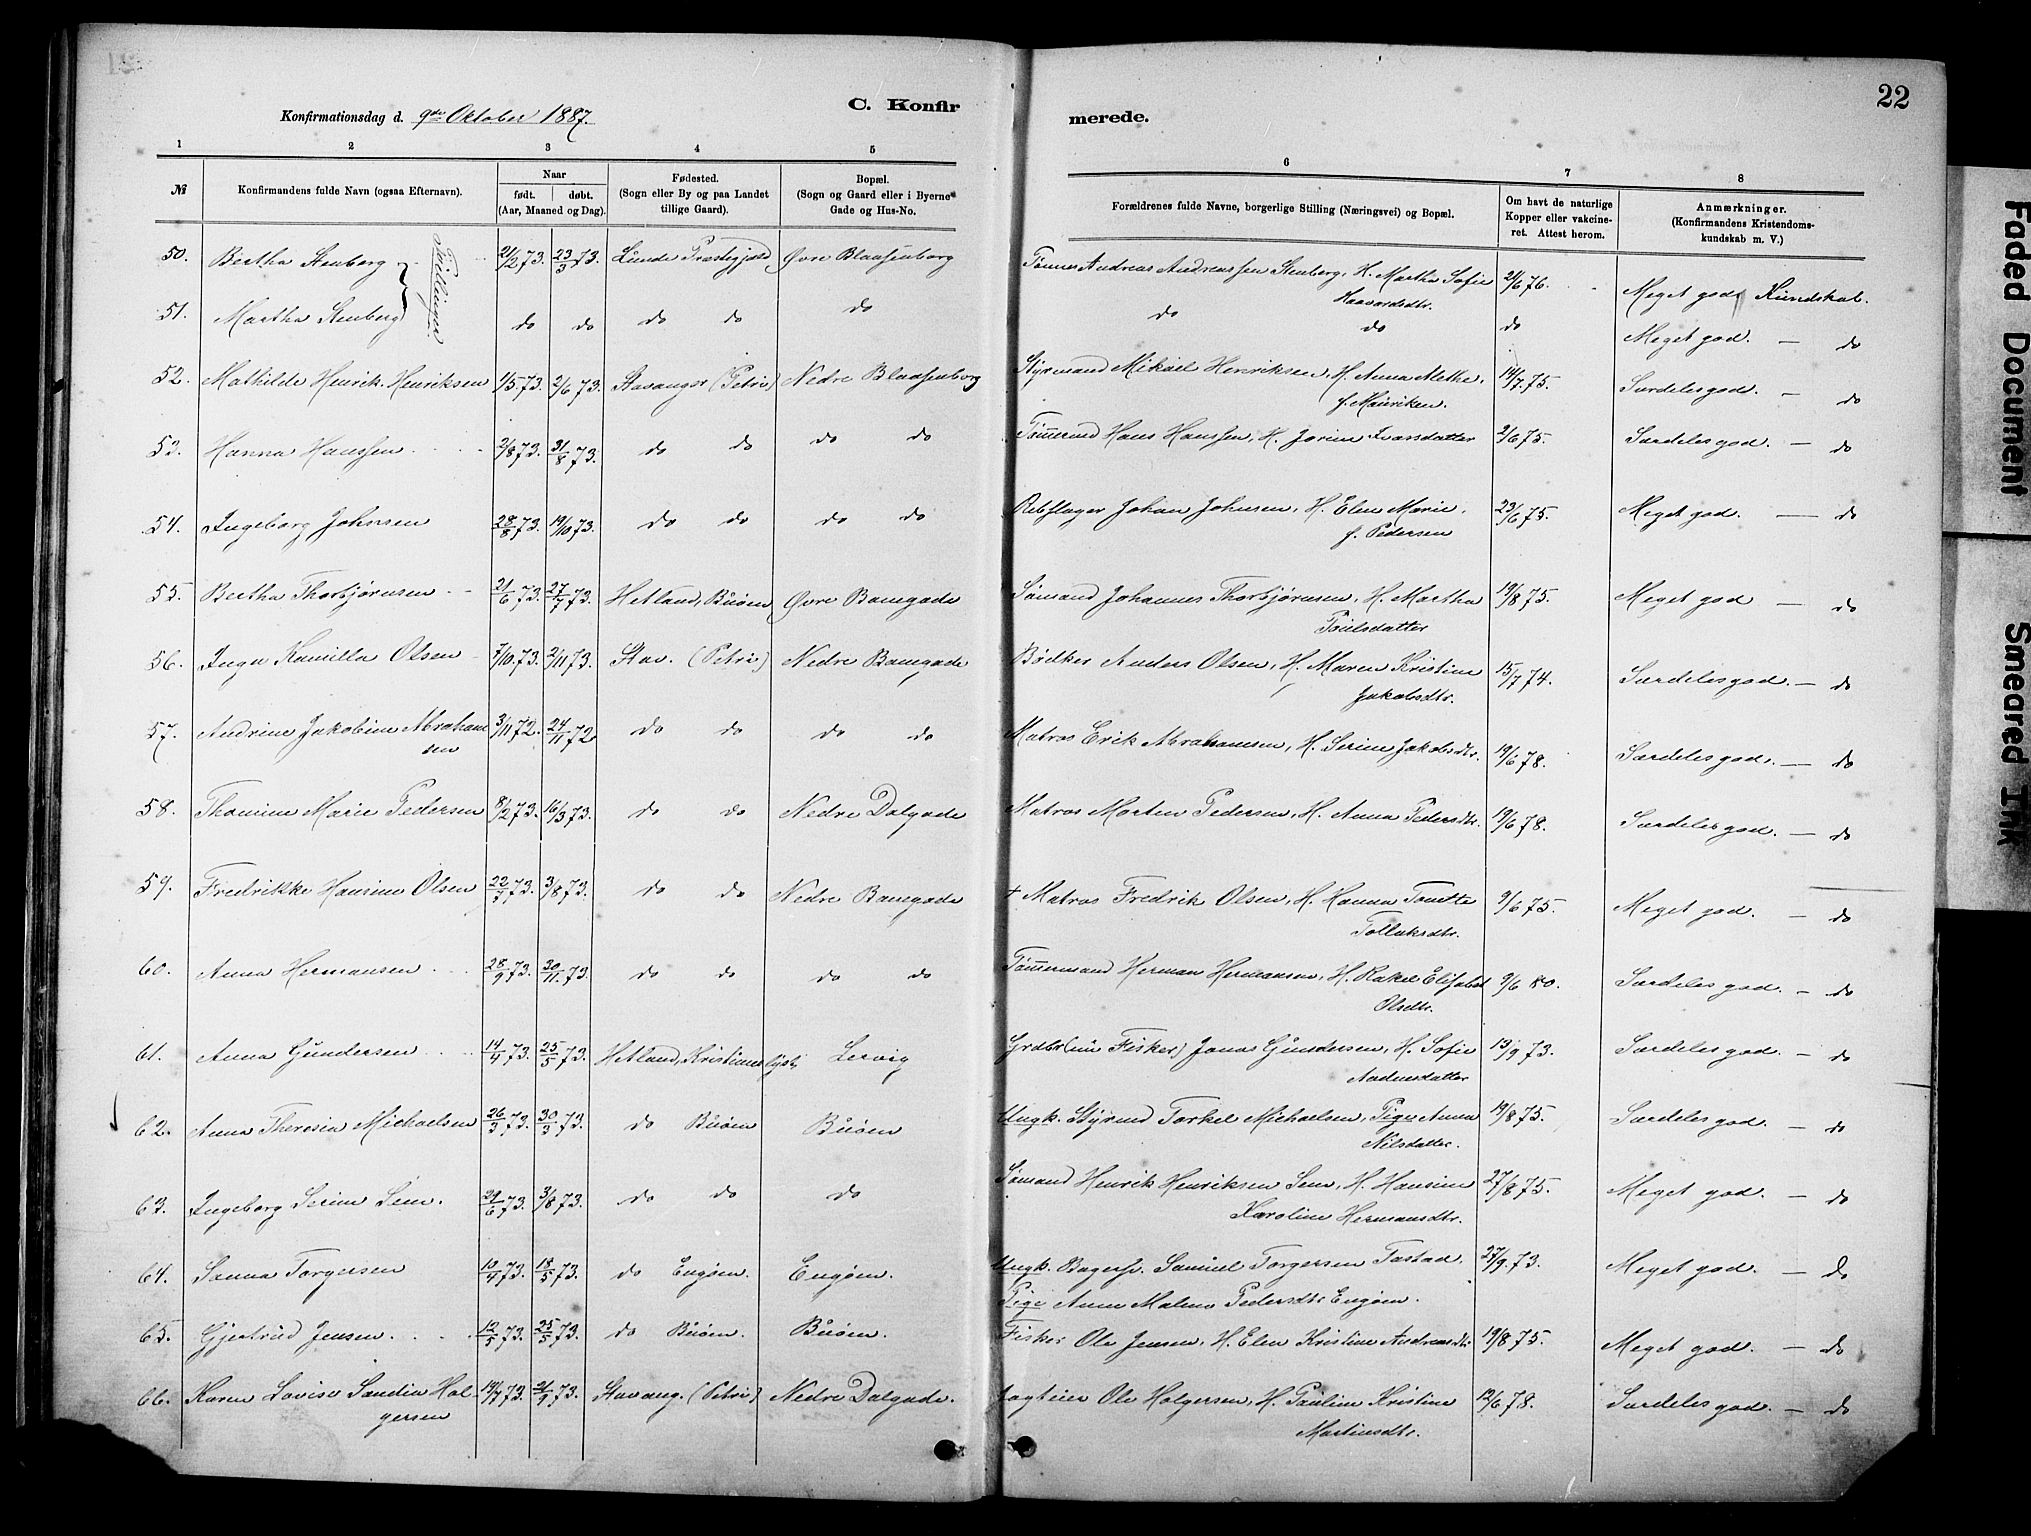 22
C. Konfir merede.
Konfirmationsdag d. 9de Oktober 1887.
1 2 3 4 5 6 7 8
№ Konfirmandens fulde Navn (ogsaa Efternavn). Naar født. døbt. (Aar, Maaned og Dag). Fødested. (Sogn eller By og paa Landet tillige Gaard). Bopæl. (Sogn og Gaard eller i Byerne Gade og Hus-No. Forældrenes fulde Navne, borgerlige Stilling (Næringsvei) og Bopæl. Om havt de naturlige Kopper eller vakcineret. Attest herom. Anmærkninger. (Konfirmandens Kristendomskundskab m. V.)
50. Bertha Stenberg } Tvillinger 21/2 73. 23/3 73. Lunde Præstegjæld Øvre Blaasenborg Tønnes Andreas Andreassen Stenberg, H. Martha Sofie 21/6 76. Meget god Kundskab.
Haavardsdtr.
51. Martha Stenberg do do do do do do do do Meget god. — do
52. Mathilde Henrik. Henriksen 1/5 73. 2/6 73. Stavanger (Petri) Nedre Blaasenborg Styrmand Mikael Henriksen, H. Anna Alethe, 14/7 75. Særdeles god. — do
f. Mauritzen.
53. Hanna Hanssen 2/8 73. 31/8 73. do do do do Tømmermd Hans Hanssen, H. Jorine Ivarsdatter 2/6 75. Særdeles god. — do
54. Ingeborg Johnsen 28/8 73. 19/10 73. do do do do Rebslager Johan Johnsen, H. Elen Marie, 23/6 75. Meget god. — do
f. Pedersen
55. Bertha Thorbjørnsen 21/6 73. 27/7 73. Hetland, Buøen Øvre Banegade Sømand Johannes Thorbjørnsen, H. Martha 19/8 75. Meget god — do
Poulsdatter
56. Inga Kamilla Olsen 7/10 73. 2/11 73. Stav. (Petri) Nedre Banegade Bødker Anders Olsen, H. Maren Kristine 15/7 74. Særdeles god. — do
Jakobsdtr.
57. Andrine Jakobine Abraham- 3/11 72. 24/11 72 do do do do Matros Erik Abrahamsen, H. Serine Jakobsdtr. 19/6 78. Særdeles god. — do
sen
58. Thomine Marie Pedersen 8/2 73. 16/3 73. do do Nedre Dalgade Matros Morten Pedersen, H. Anna Pedersdtr. 19/6 78. Særdeles god. — do
59. Fredrikke Hansine Olsen 22/7 73. 3/8 73. do do Nedre Banegade + Matros Fredrik Olsen, H. Hanna Tonette 9/6 75. Meget god. — do
Tollaksdtr.
60. Anna Hermansen 28/9 73. 30/11 73. do do do do Tømmermand Herman Hermansen, H. Rakel Elisabet 9/6 80. Særdeles god. — do
Olsdtr.
61. Anna Gundersen 14/4 73. 25/5 73. Hetland, Kristianslyst, Lervig Grdbr. (nu Fisker) Jonas Gundersen, H. Sofie 13/9 73. Særdeles god. — do
Aadnesdatter
62. Anna Theresia Michaelsen 26/3 73. 30/3 73. do Buøen Buøen Ungk. Styrmd Torkel Michaelsen, Pige Anna 19/8 75. Særdeles god. — do
Nilsdatter.
63. Ingeborg Serine Sem. 29/6 73. 3/8 73. do do do Sømand Henrik Henriksen Sem, H. Hansine 27/8 75. Meget god. — do
Karoline Hermansdtr.
64. Sanna Torgersen 10/4 73. 18/5 73. do Engøen. Engøen. Ungk. Bagersv. Samuel Torgersen Tastad, 27/9 73. Meget god. — do
Pige Anna Malena Pedersdtr Engøen.
65. Gjertrud Jensen. 12/5 73. 25/5 73. do Buøen. Buøen. Fisker Ole Jensen, H. Elen Kristine Andreasdtr. 19/8 75. Meget god. — do
66. Karen Lovise Sandia Hol- 19/7 73. 21/9 73. Stavang. (Petri) Nedre Dalgade. Jagteier Ole Holgersen, H. Pauline Kristine 12/6 78. Særdeles god. — do
gersen Martinsdtr.
Faded Document
Smeared Ink